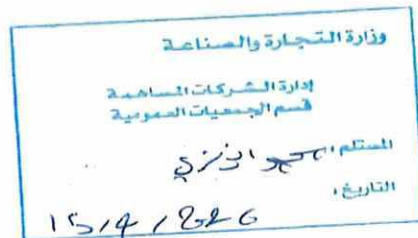 وزارة التجارة والصناعة
إدارة الشركات المساهمة
قسم الجمعيات العمومية
المستلم :
التاريخ :
15/4/2026